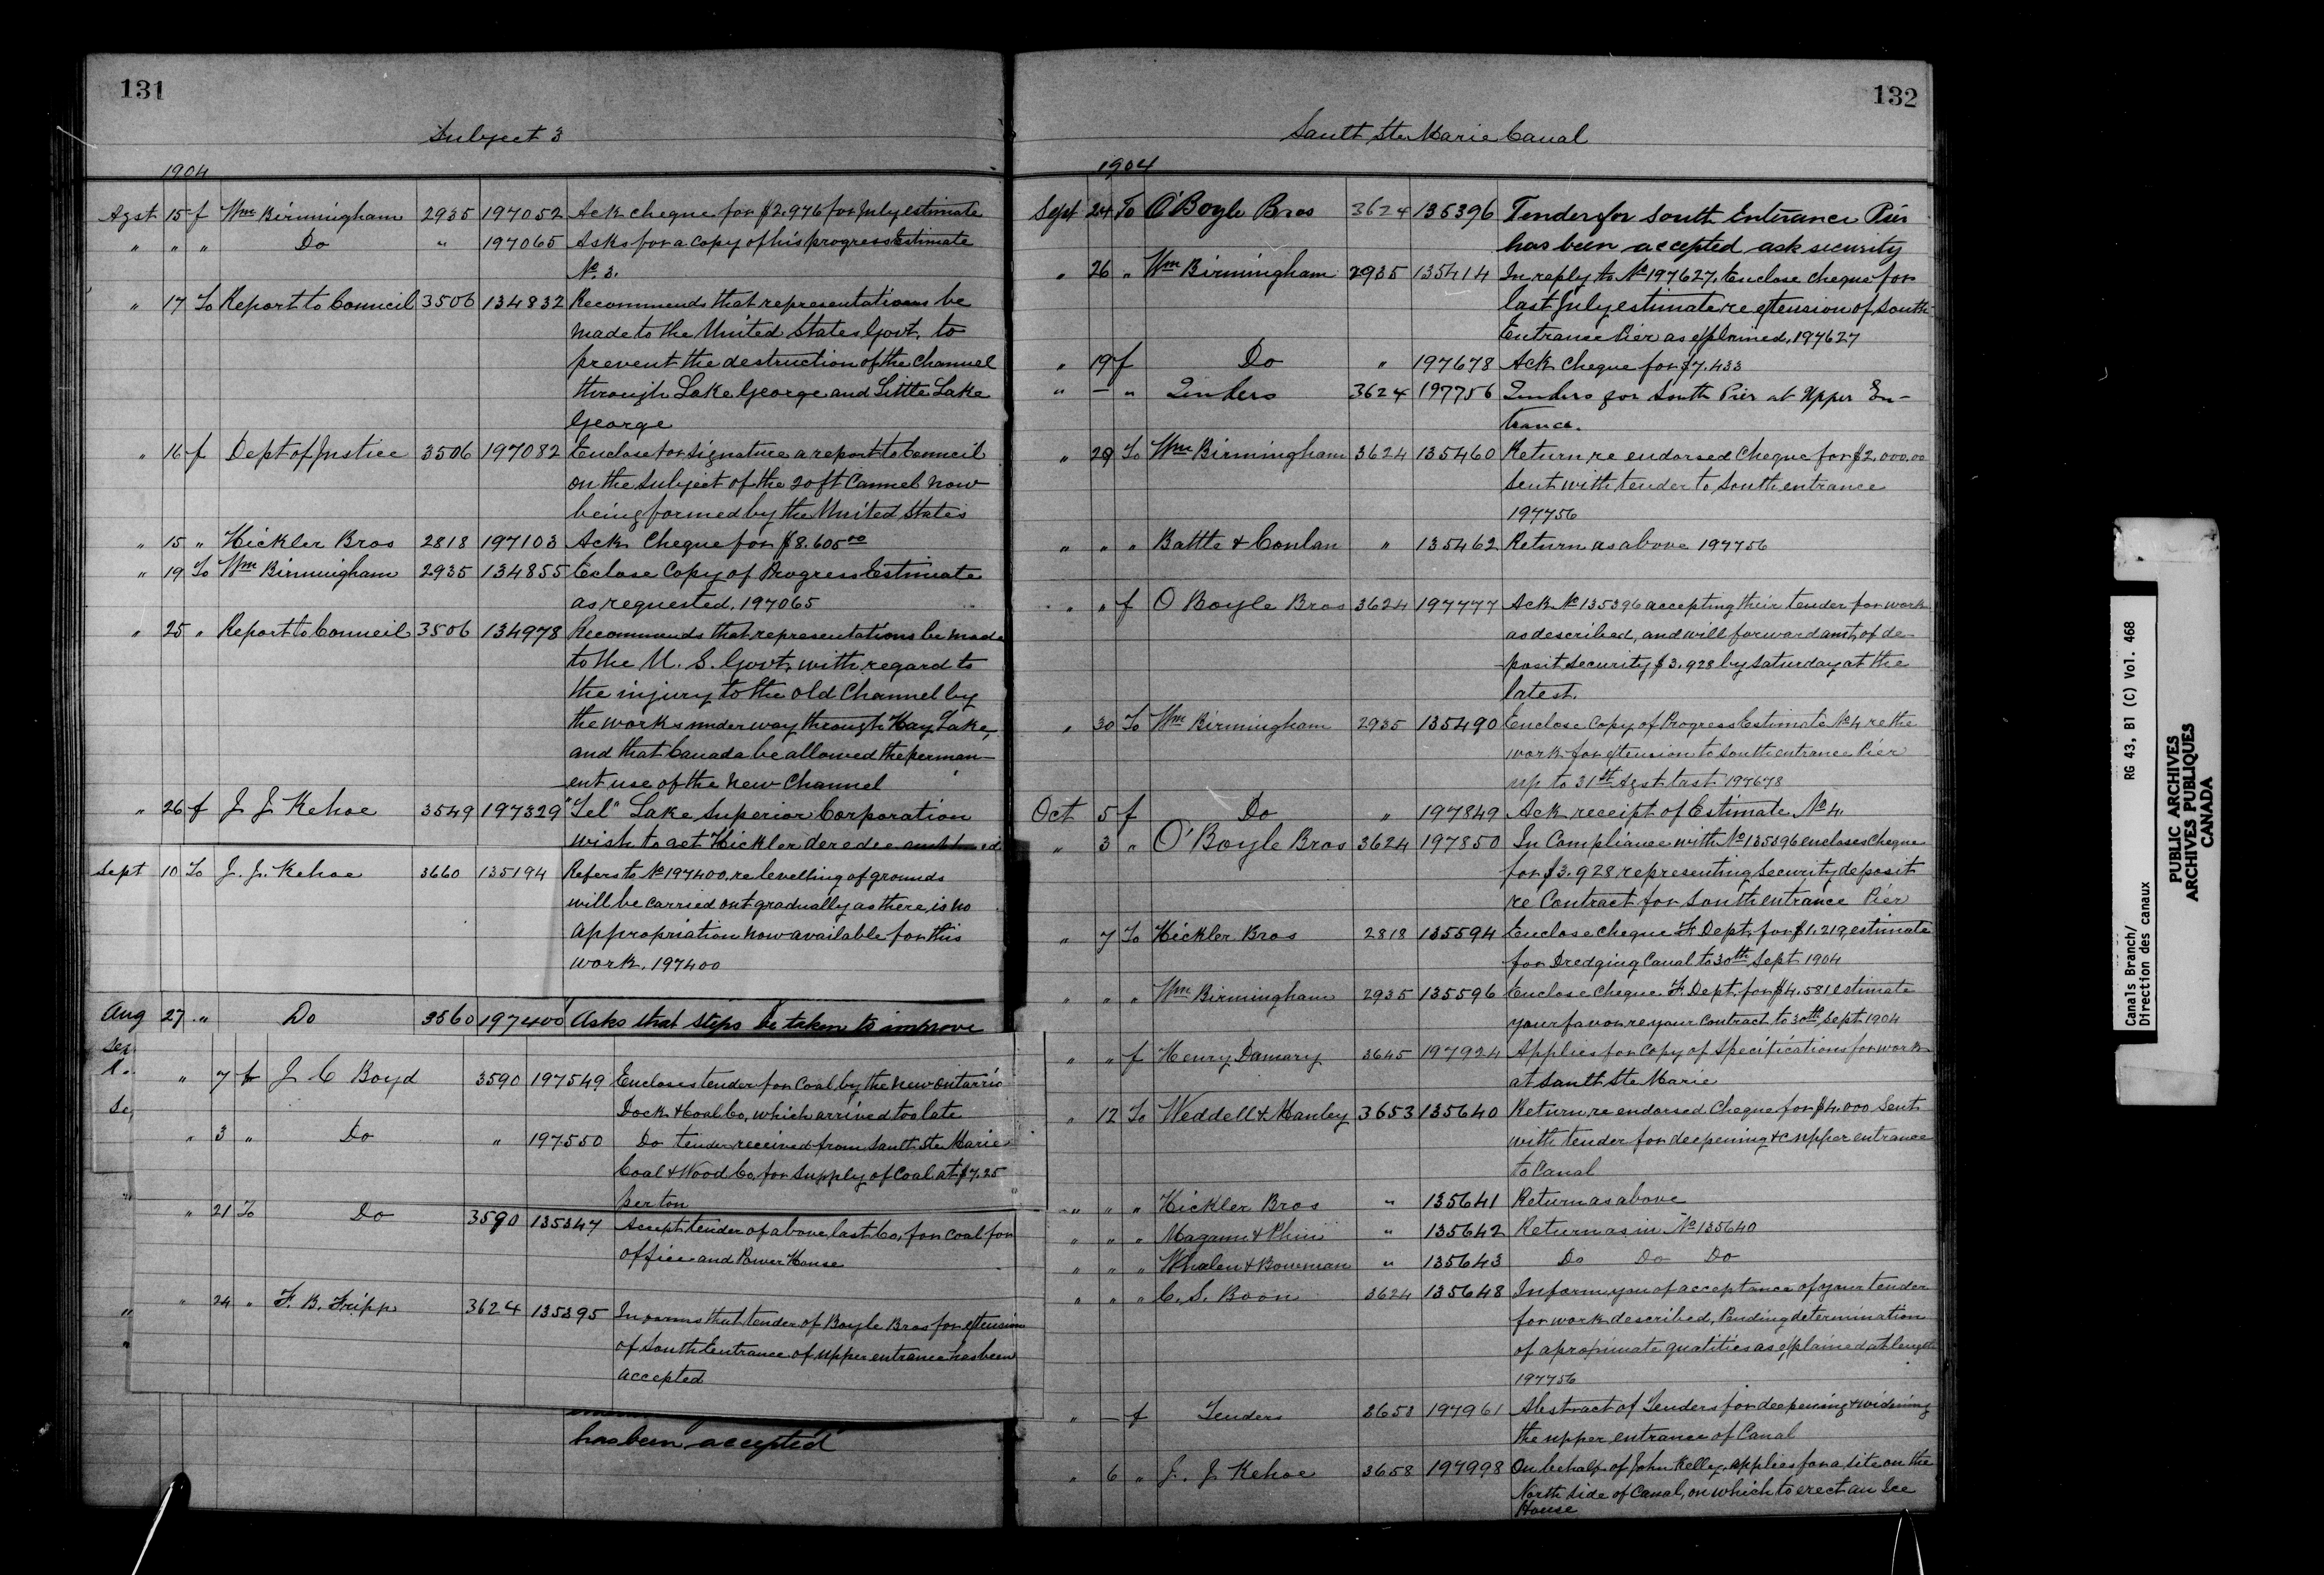 131
Subject 3
1904
Agst 15 f Wm Birmingham 2935 197052 Ack cheque for $2.976 for July estimate
" " " Do " 197065 Asks for a copy of his progress Estimate
No. 3.
" 17 To Report to Council 3506 134832 Recommends that representations be
made to the United States Govt. to
prevent the destruction of the Channel
through Lake George and Little Lake
George
" 16 f Dept of Justice 3506 197082 Enclose for signature a report to Council
on the subject of the 20 ft Cannel now
being formed by the United States
" 15 " Hickler Bros 2818 197103 Ack Cheque for $8.605 00
" 19 To Wm Birmingham 2935 134855 Eclose Copy of Progress Estimate
as requested. 197065
" 25 " Report to Council 3506 134978 Recommends that representations be made
to the U. S. Govt. with regard to
the injury to the old Channel by
the works under way through Hay Lake,
and that Canada be allowed the perman-
ent use of the new Channel
" 26 f J J Kehoe 3549 197329 "Tel" Lake Superior Corporation
wish to get Hickler dredge
Sept 10 To J. J. Kehoe 3660 135194 Refers to No 197400, re levelling of grounds
will be carried out gradually as there, is no
appropriation now available for this
work. 197400
Aug 27 " Do 3560 197400 Asks that steps be taken to improve
" 7 f J C Boyd 3590 197549 Encloses tender for Coal by the New Ontario
Dock & Coal Co, which arrived too late
" 3 " Do " 197550 Do tender received from Sault Ste Marie
Coal & Wood Co, for supply of Coal at $7.25
per ton
" 21 To Do 3590 135347 Accept tender of above, last Co, for Coal for
office and Power House
" 24 " F. B. Fripp 3624 135395 Informs that tender of Boyle Bros for extension
of South Entrance of upper entrance has been
accepted
has been accepted
132
Sault Ste Marie Canal
1904
Sept 24 To O'Boyle Bros 3624 135396 Tender for South Entrance Pier
has been accepted ask security
" 26 " Wm Birmingham 2935 135414 In reply to No 197627, Enclose cheque for
last July estimate re extension of South
Entrance Pier as explained, 197627
" 19 f Do " 197678 Ack Cheque for $7.433
" — " Tenders 3624 197756 Tenders for South Pier at Upper En-
trance.
" 29 To Wm Birmingham 3624 135460 Return re endorsed Cheque for $2.000.00
sent with tender to South entrance
197756
" " " Battle & Conlan " 135462 Return as above 197756
" " f O Boyle Bros 3624 197777 Ack No 135396 accepting their tender for work
as described, and will forward amt, of de-
posit security $3.928 by Saturday at the
latest.
" 30 To Wm Birmingham 2935 135490 Enclose Copy of Progress Estimate No 4 re the
work for extension to South entrance Pier
up to 31st Agst last 197678
Oct 5 f Do " 197849 Ack receipt of Estimate No 4
" 3 " O'Boyle Bros 3624 197850 In Compliance with No 135396 encloses Cheque
for $3.928 representing Security deposit
re Contract for South entrance Pier
" 7 To Hickler Bros 2818 135594 Enclose cheque F. Dept. for $1.219, estimate
for Dredging Canal to 30th Sept 1904
" " " Wm Birmingham 2935 135596 Enclose Cheque F. Dept. for $4.581 estimate
your favor re your Contract to 30th Sept 1904
" " f Henry Damary 3645 197924 Applies for Copy of Specifications for work
at Sault Ste Marie
" 12 To Weddell & Manley 3653 135640 Return re endorsed Cheque for $4.000 sent
with tender for deepening &c upper entrance
to Canal
" " " Hickler Bros " 135641 Return as above
" " " Magann & Phin " 135642 Return as in No 135640
" " " Whalen & Bowman " 135643 Do Do Do
" " " C. S. Boon 3624 135648 Inform you of acceptance of your tender
for work described, Pending determination
of aproximate quatities as explained at length
197756
" — f Tenders 3653 197961 Abstract of Tenders for deepening & widening
the upper entrance of Canal
" 6 " J. J Kehoe 3658 197998 On behalf of John Kelley, applies for a site on the
North side of Canal, on which to erect an Ice
House
Canals Branch/
Direction des canaux
RG 43, B1 (C) Vol. 468
PUBLIC ARCHIVES
ARCHIVES PUBLIQUES
CANADA